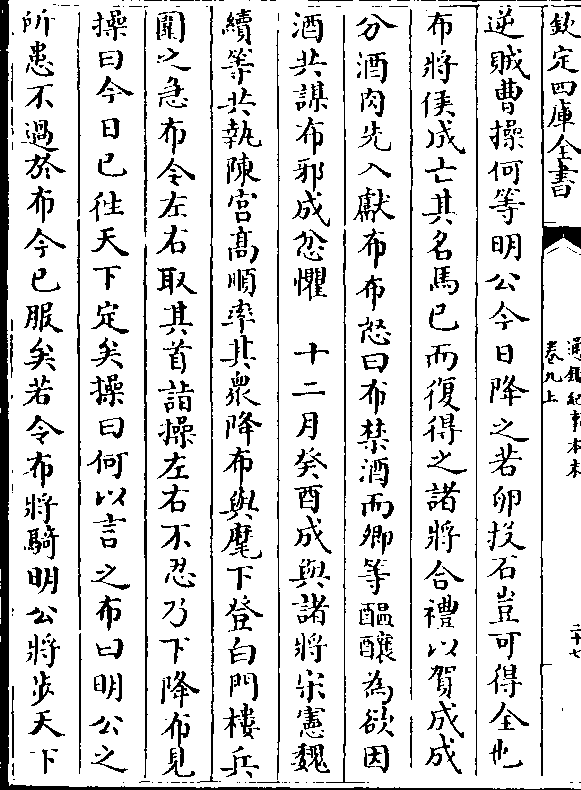 欽定四庫全書
通鑑紀事本末
卷九上
二十七
逆賊曹操何等明公今日降之若卵投石豈可得全也
布將侯成亡其名馬已而復得之諸將合禮以賀成成
分酒肉先入獻布布怒曰布禁酒而卿等醖釀為欲因
酒共謀布邪成忿懼　十二月癸酉成與諸將宋憲魏
續等共執陳宮高順率其衆降布與麾下登白門樓兵
圍之急布令左右取其首詣操左右不忍乃下降布見
操曰今日已往天下定矣操曰何以言之布曰明公之
所患不過於布今已服矣若令布將騎明公將步天下